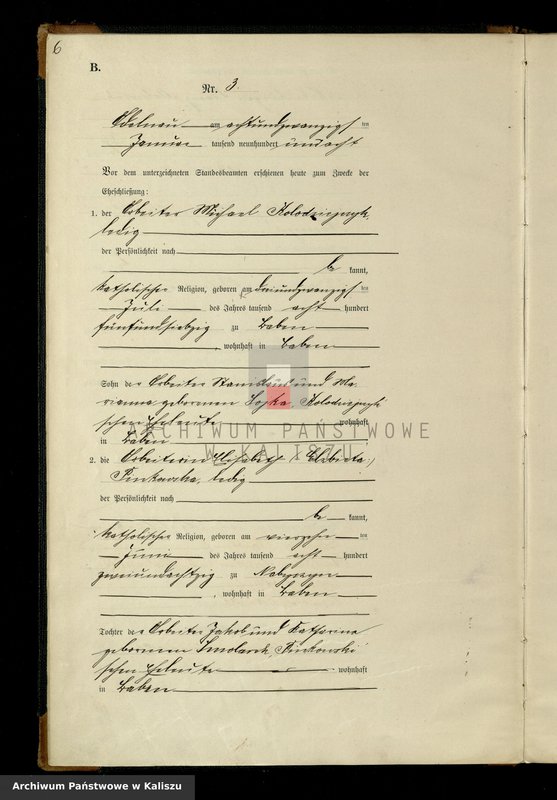 6
B.
Nr. 3.
Adelnau am achtundzwanzigs ten
Januar tausend neunhundert und acht
Vor dem unterzeichneten Standesbeamten erschienen heute zum Zwecke der
Eheschließung:
1. der Arbeiter Michael Kolodziejczyk,
ledig
der Persönlichkeit nach
be kannt,
katholischer Religion, geboren am dreiundzwanzigs ten
Juli des Jahres tausend acht hundert
fünfundsiebzig zu
, wohnhaft in
Sohn der Arbeiter Stanislaus und Ma-
rianna geborenen Kolodziejczyk
schen Eheleute wohnhaft
in
ARCHIWUM PAŃSTWOWE
W KALISZU
2. die Arbeiterin Elisabeth (: Elzbieta :)
ledig
der Persönlichkeit nach
be kannt,
katholischer Religion, geboren am vierzehn ten
Juni des Jahres tausend acht hundert
zweiundachtzig zu
, wohnhaft in
Tochter der Arbeiter Jakob und Katharina
geborenen Smolarek,
schen Eheleute wohnhaft
in
Archiwum Państwowe w Kaliszu